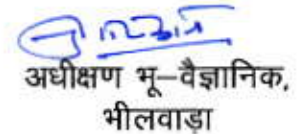 अधीक्षण भू–वैज्ञानिक,
भीलवाड़ा